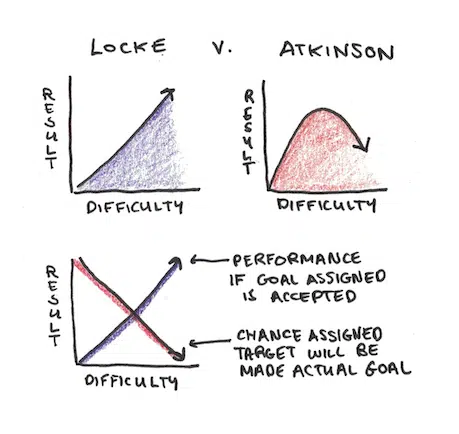 LOCKE V. ATKINSON
RESULT
DIFFICULTY
RESULT
DIFFICULTY
RESULT
DIFFICULTY
PERFORMANCE
IF GOAL ASSIGNED
IS ACCEPTED
CHANCE ASSIGNED
TARGET WILL BE
MADE ACTUAL GOAL